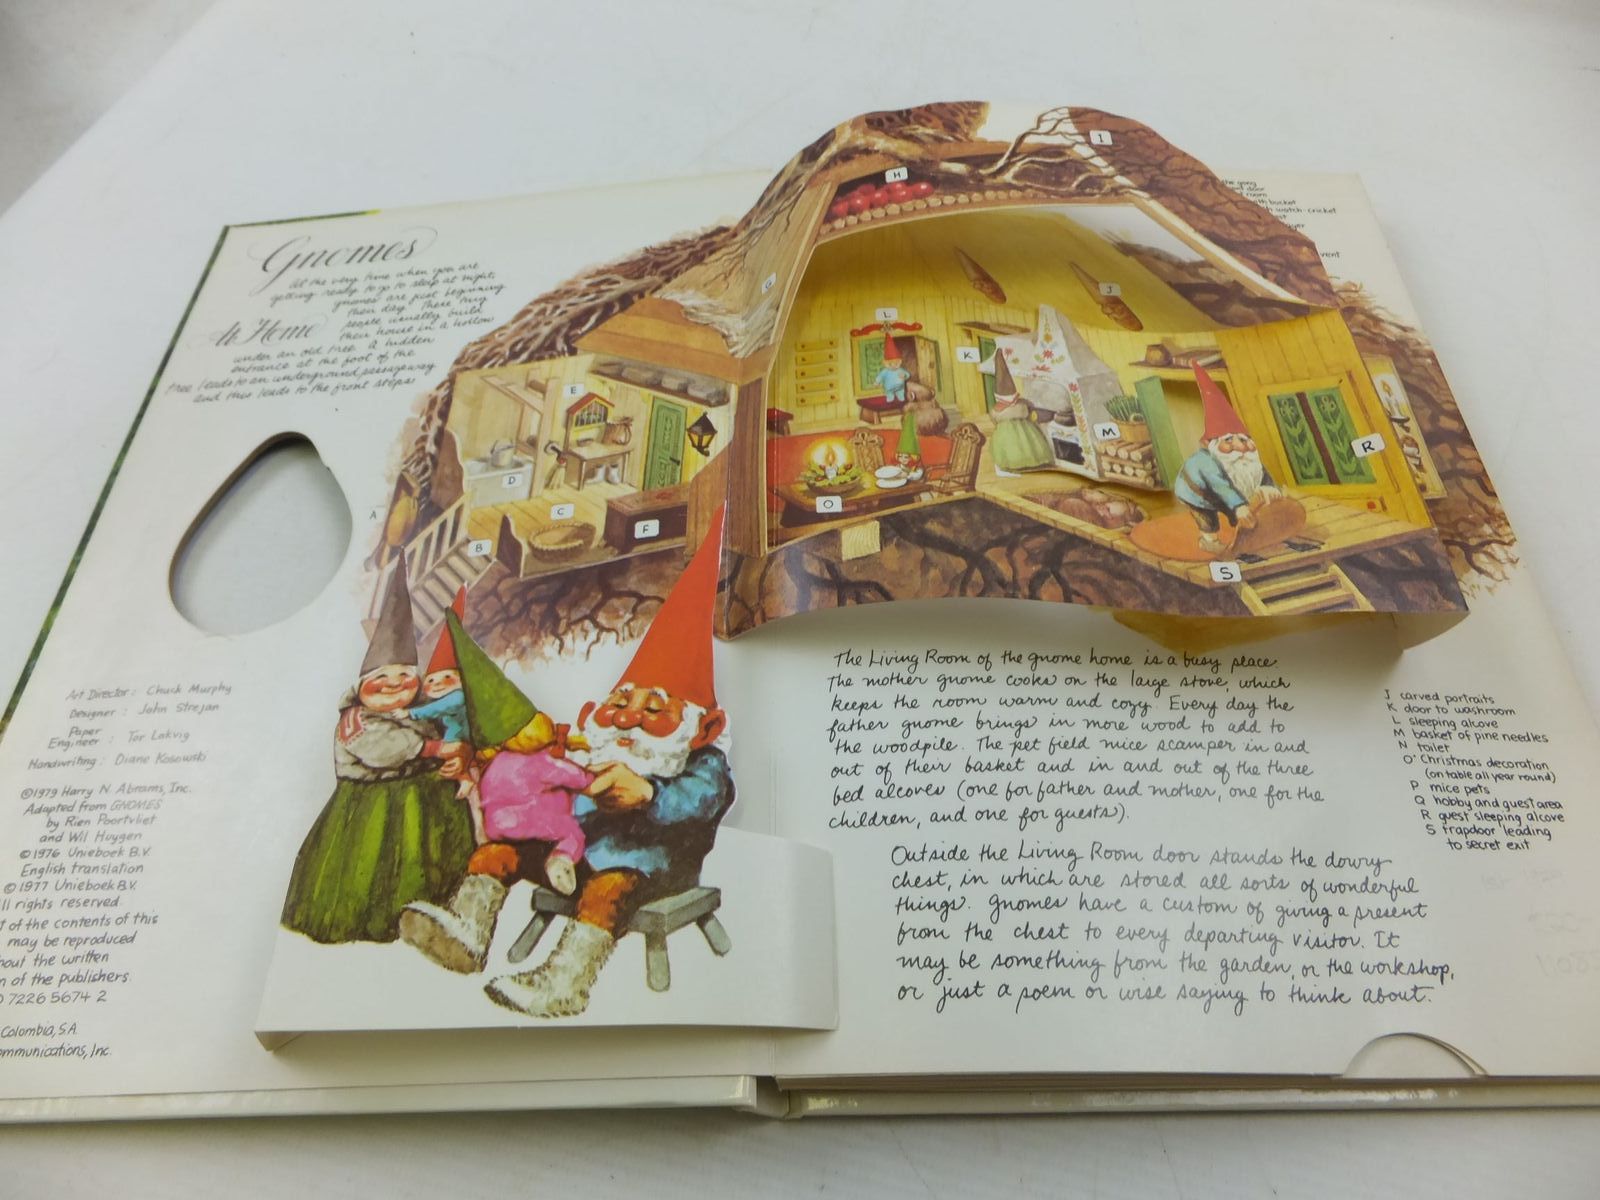 Gnomes
At Home
At the very time when you are
getting ready to go to sleep at night,
gnomes are just beginning
their day. These tiny
people usually build
their house in a hollow
under an old tree. A hidden
entrance at the foot of the
tree leads to an underground passageway
and this leads to the front steps.
Art Director: Chuck Murphy
Designer: John Strejan
Paper
Engineer: Tor Lokvig
Handwriting: Diane Kosowski
©1979 Harry N. Abrams, Inc.
Adapted from GNOMES
by Rien Poortvliet
and Wil Huygen
©1976 Unieboek B.V.
English translation
©1977 Unieboek B.V.
ll rights reserved.
t of the contents of this
may be reproduced
hout the written
n of the publishers.
7226 5674 2
Colombia, S.A.
ommunications, Inc.
A
B
C
D
E
F
G
H
I
J
K
L
M
O
R
S
the gong
door
room
bucket
watch-cricket
vent
The Living Room of the gnome home is a busy place.
The mother gnome cooks on the large stove, which
keeps the room warm and cozy. Every day the
father gnome brings in more wood to add to
the woodpile. The pet field mice scamper in and
out of their basket and in and out of the three
bed alcoves (one for father and mother, one for the
children, and one for guests).
Outside the Living Room door stands the dowry
chest, in which are stored all sorts of wonderful
things. Gnomes have a custom of giving a present
from the chest to every departing visitor. It
may be something from the garden, or the workshop,
or just a poem or wise saying to think about.
J carved portraits
K door to washroom
L sleeping alcove
M basket of pine needles
N toilet
O Christmas decoration
(on table all year round)
P mice pets
Q hobby and guest area
R guest sleeping alcove
S trapdoor leading
to secret exit